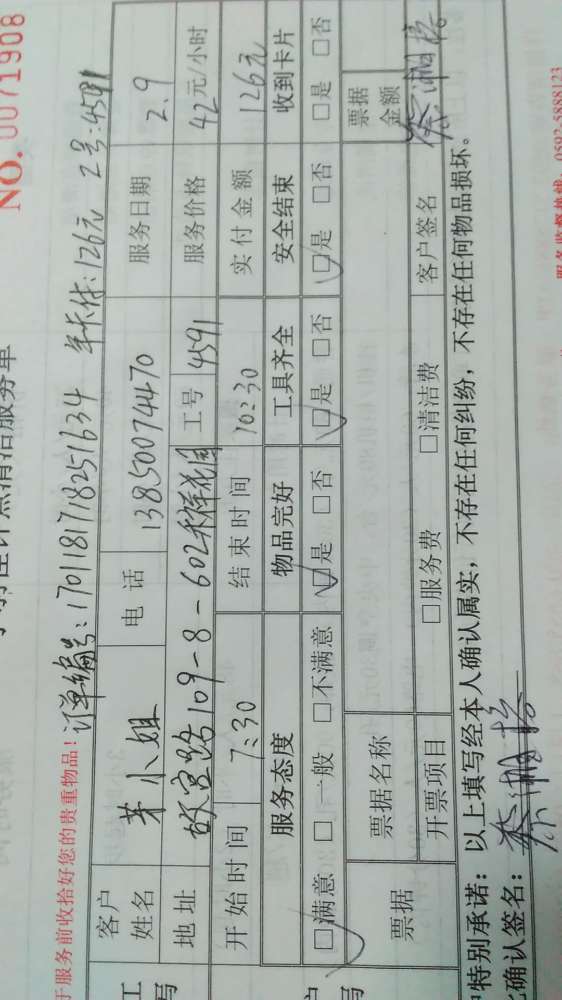 NO. 0071908
计点清洁服务单
于服务前收拾好您的贵重物品！
订单编号：1701181718251634 年卡付：126元 工号：4591
客户姓名 小姐 电话 13850074470 服务日期 2.9
地址 故宫路109-8-602 工号 4591 服务价格 42元/小时
开始时间 7:30 结束时间 10:30 实付金额 126元
服务态度 物品完好 工具齐全 安全结束 收到卡片
☑满意 □一般 □不满意 ☑是 □否 ☑是 □否 ☑是 □否 □是 □否
票据 票据名称 票据金额
开票项目 □服务费 □清洁费 客户签名
特别承诺：以上填写经本人确认属实，不存在任何纠纷，不存在任何物品损坏。
确认签名：
服务监督热线：0592-5888123